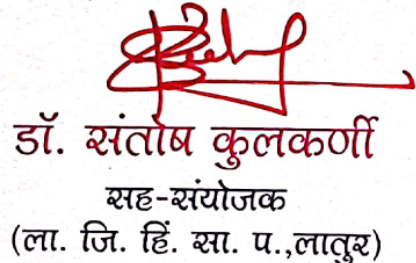 डॉ. संतोष कुलकर्णी
सह-संयोजक
(ला. जि. हिं. सा. प.,लातूर)